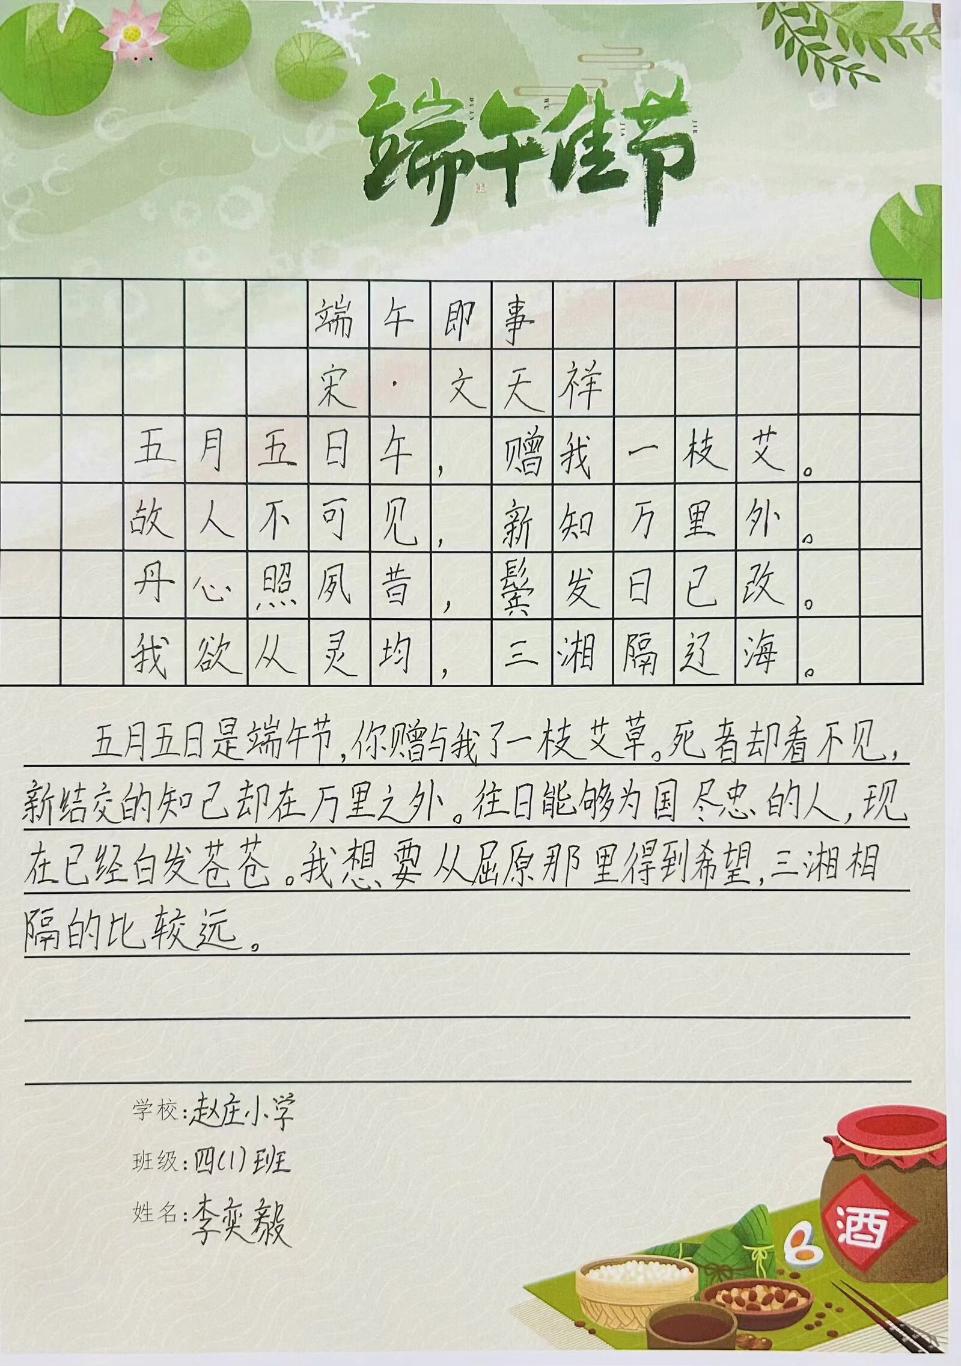 端午佳节
端午即事
宋·文天祥
五月五日午，赠我一枝艾。
故人不可见，新知万里外。
丹心照夙昔，鬓发日已改。
我欲从灵均，三湘隔辽海。
五月五日是端午节，你赠与我了一枝艾草。死者却看不见，
新结交的知己却在万里之外。往日能够为国尽忠的人，现
在已经白发苍苍。我想要从屈原那里得到希望，三湘相
隔的比较远。
学校：赵庄小学
班级：四（1）班
姓名：李奕毅
酒